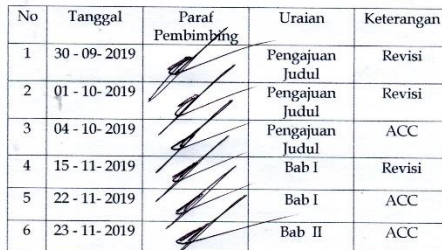 No Tanggal Paraf Pembimbing Uraian Keterangan
1 30 - 09- 2019 Pengajuan Judul Revisi
2 01 - 10- 2019 Pengajuan Judul Revisi
3 04 - 10- 2019 Pengajuan Judul ACC
4 15 - 11- 2019 Bab I Revisi
5 22 - 11- 2019 Bab I ACC
6 23 - 11- 2019 Bab II ACC